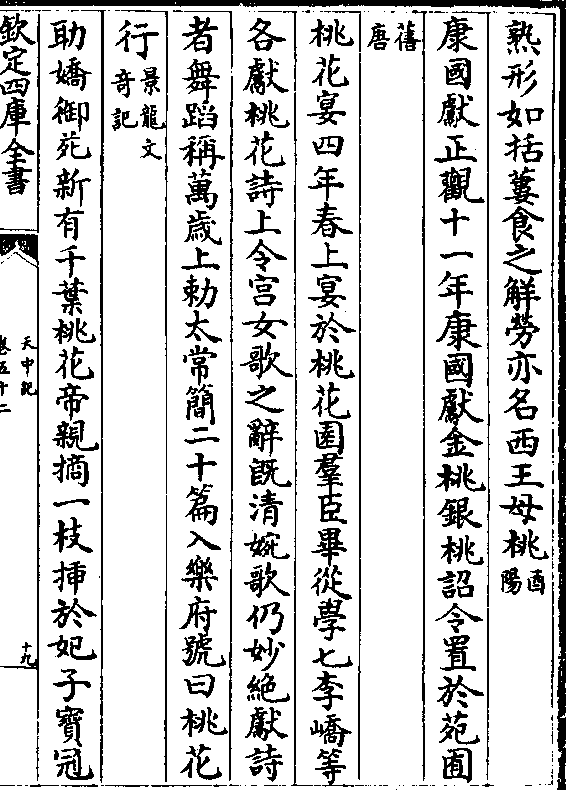 熟形如括蔞食之解勞亦名西王母桃酉陽
康國獻正觀十一年康國獻金桃銀桃詔令置於苑囿
舊唐
桃花宴四年春上宴於桃花園羣臣畢從學七李嶠等
各獻桃花詩上令宫女歌之辭旣清婉歌仍妙絶獻詩
者舞蹈稱萬歲上勅太常簡二十篇入樂府號曰桃花
行景龍文竒記
助嬌御苑新有千葉桃花帝親摘一枝揷於妃子寶冠
欽定四庫全書
天中記
卷五十二
十九